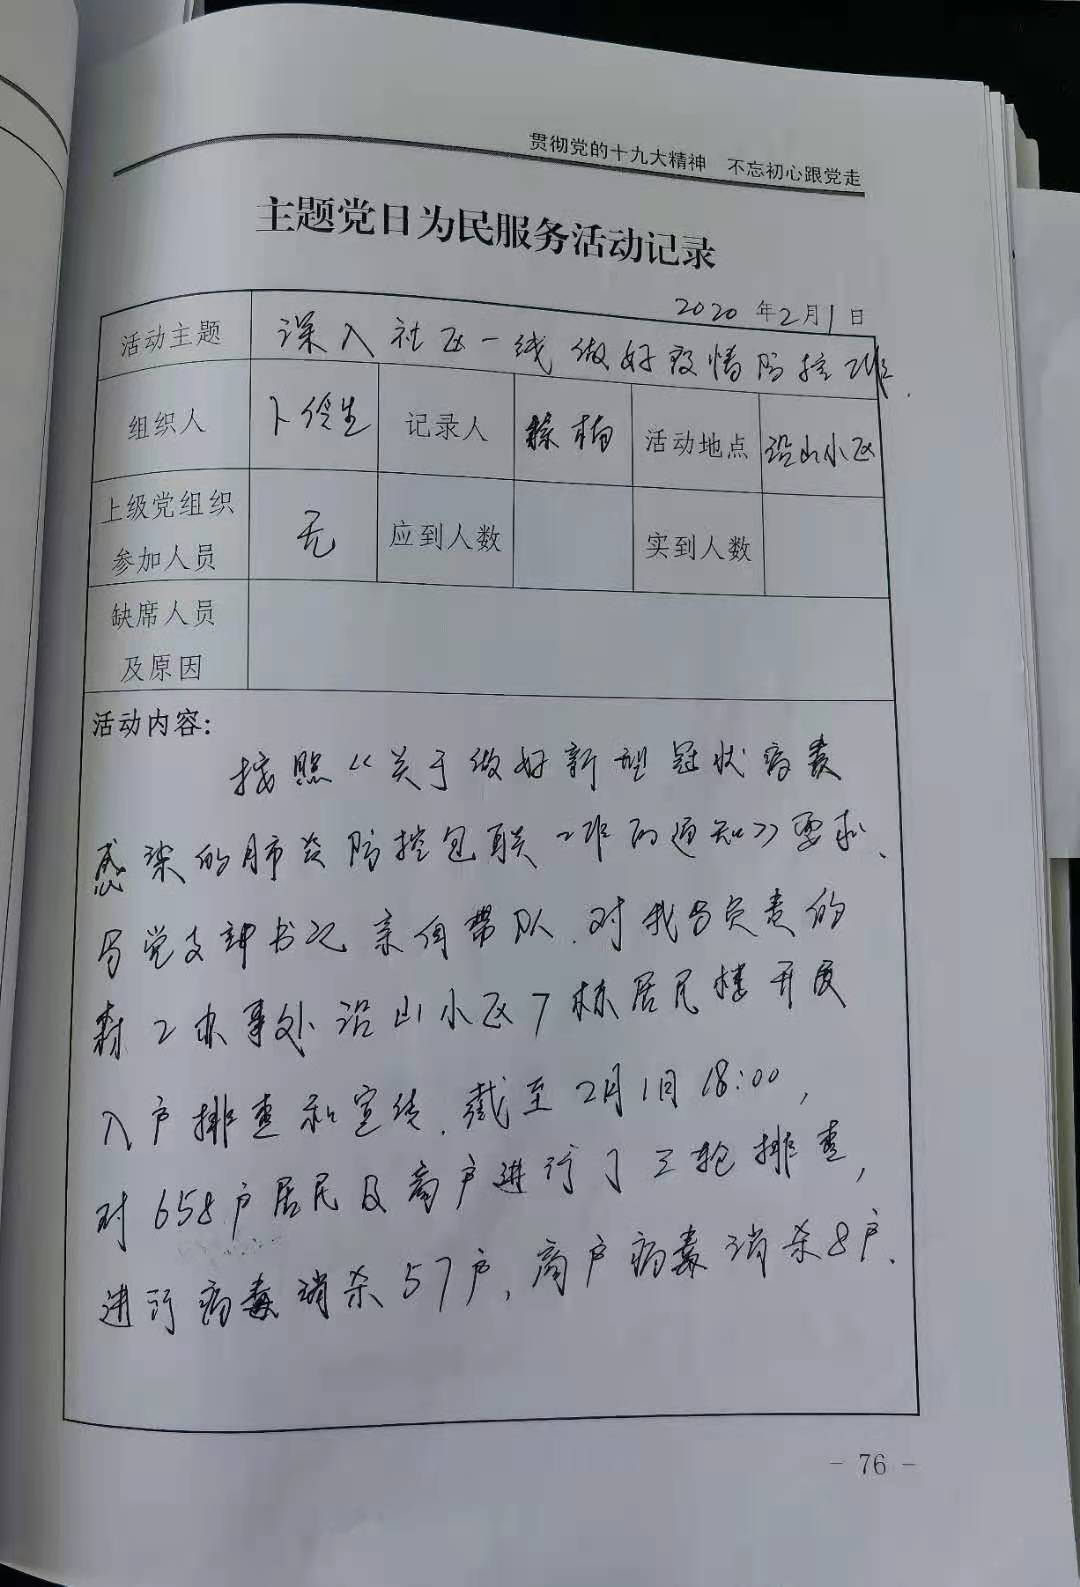 贯彻党的十九大精神 不忘初心跟党走
主题党日为民服务活动记录
2020 年2月1日
活动主题 深入社区一线做好疫情防控工作.
组织人 卜伶生 记录人 活动地点 沿山小区
上级党组织参加人员 无 应到人数 实到人数
缺席人员及原因
活动内容：
按照《关于做好新型冠状病毒
感染的肺炎防控包联工作的通知》要求、
局党支部书记亲自带队、对我局负责的
森工办事处沿山小区7栋居民楼开展
入户排查和宣传、截至2月1日18:00，
对658户居民及商户进行了三轮排查，
进行病毒消杀57户，商户病毒消杀8户.
- 76 -